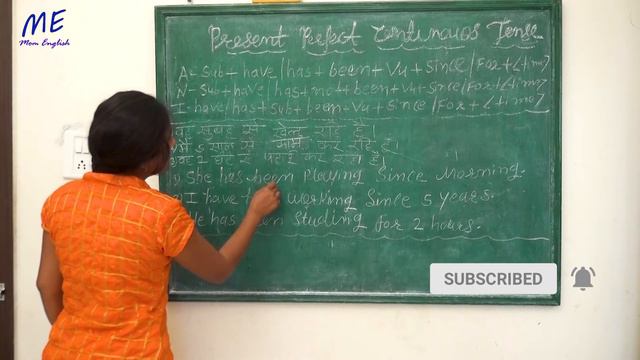 ME
Mom English
Present Perfect Continuous Tense
A - Sub + have / has + been + V4 + Since / For + <time>
N - Sub + have / has + not + been + V4 + Since / For + <time>
I - have / has + Sub + been + V4 + Since / For + <time>
वह सुबह से खेल रही है।
मैं 5 साल से काम कर रही हूँ।
वह 2 घंटे से पढ़ाई कर रहा है।
She has been Playing Since Morning.
I have Working Since 5 years.
has Studing for 2 hours.
SUBSCRIBED